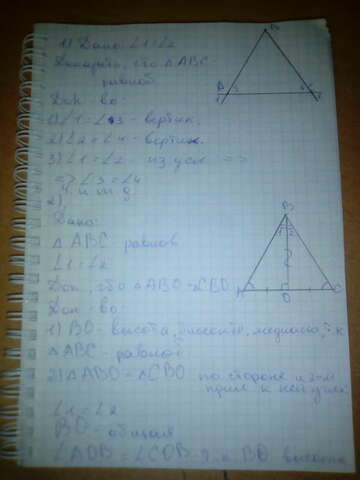 1) Дано: ∠1=∠2
Доказать, что △ABC -
равноб
Док-во:
1) ∠1=∠3 - вертик.
2) ∠2=∠4 - вертик.
3) ∠1=∠2 - из усл =>
=> ∠3=∠4
ч.и т.д
2)
Дано:
△ABC равноб
∠1=∠2
Док, что △ABO=△CBO
Док-во:
1) BO - высота, медиана, т.к
△ABC - равноб
2) △ABO=△CBO по стороне и 2-м
прил к ней угл
∠1=∠2
BO - общая
∠AOB=∠COB т.к BO высота
B
A
B
1 2
A
O
C